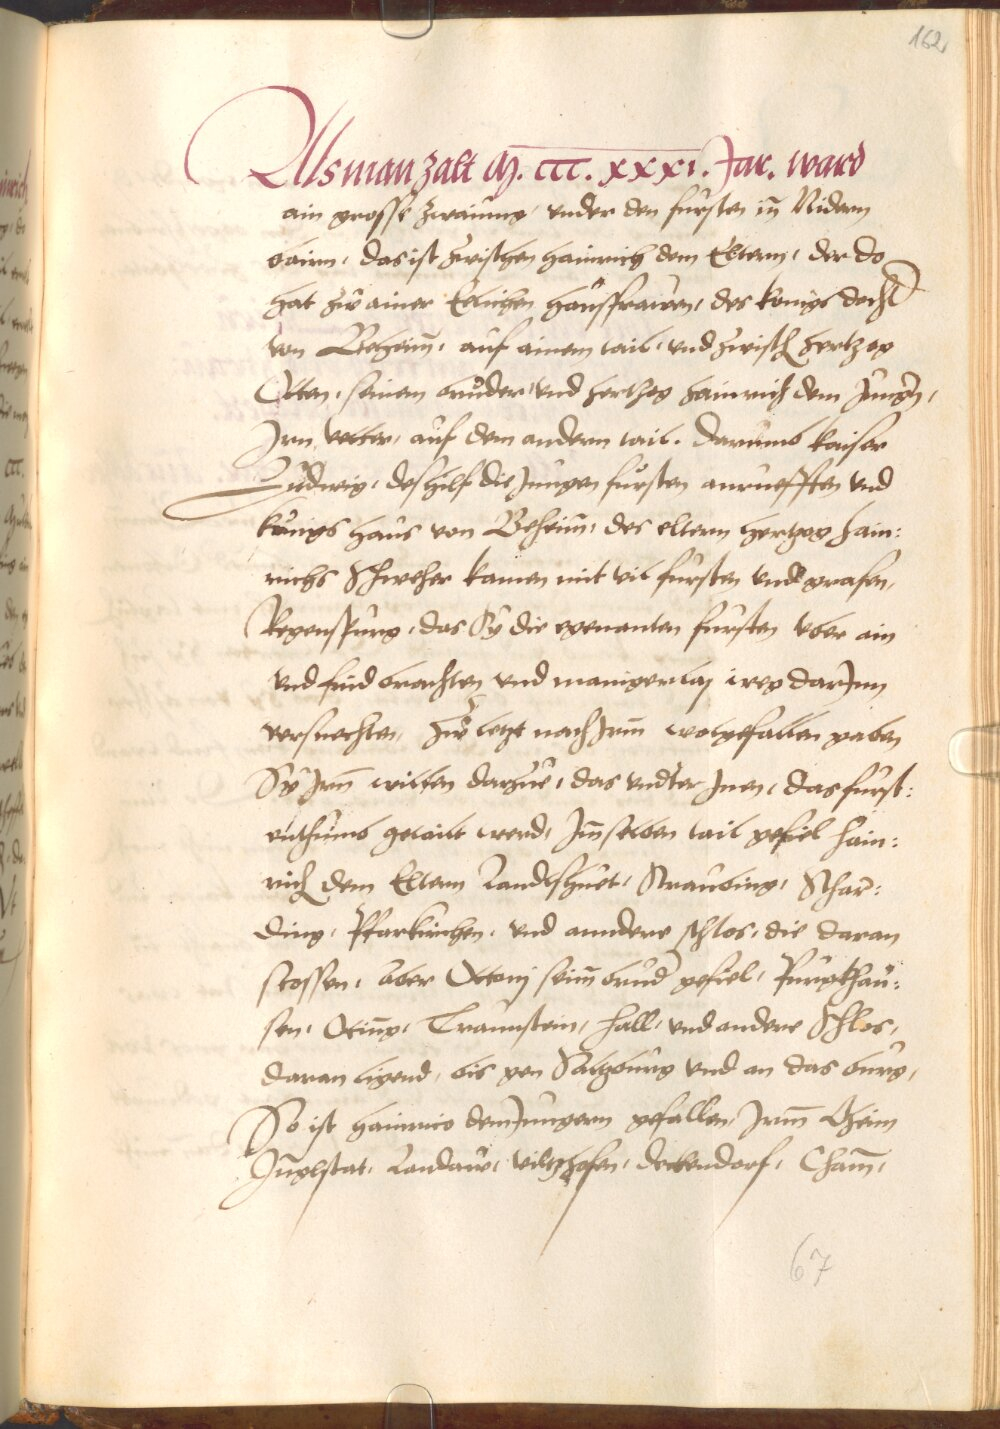 162
Als man zalt M. ccc. xxxi. Jar. ward
ain grosse zwaiung, vnder den fursten in Nidern
bairn, das ist zwischen Hainrich dem Eltern, der do
hat zw ainer Elichen haussfrawen, des konigs docht
von Beheim, auf ainem tail, vnd zwisch hertzog
Otten, seinem bruder, vnd hertzog Hainrich dem Jungn,
Jrm vetter, auf dem andern tail. Darumb kaiser
Ludwig, des hilf die Jungen fursten anruefften vnd
kunigs Hans von Beheim, des eltern hertzog Hain:
richs Schweher kamen mit vil fursten vnd grafen,
Regenspurg, das Sy die egenanten fursten vber ain
vnd frid brachten vnd manigerlaj weg darJnn
versuechten, Zw letzt nach Jrm wolgefallen gaben
Sy Jrn willen darzue, das vndter Jnen, das furst:
enthumb getailt werd, Jm selben tail gefiel Hain:
rich dem Eltern Landshuet, Straubing, Schar:
ding, Pfarkirchen, vnd anndere schlos, die daran
stossen, aber Ottonj seim brud gefiel, Purgkhau:
sen, Oting, Traunstein, Hall, vnd andere Schlos,
daran ligend, bis gen Saltzburg vnd an das burg,
So ist Hainrico dem Jungern gefallen, Jrm Oheim
Jnglstat, Landaw, Viltzhofen, Deckendorf, Cham,
67